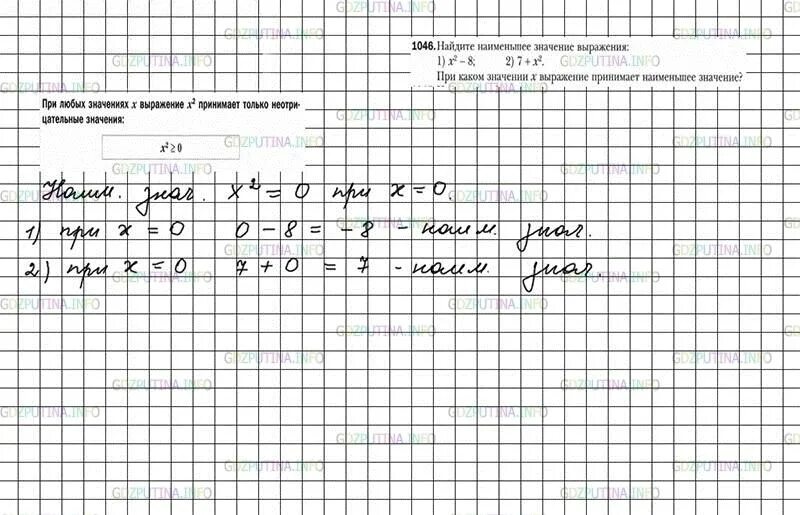 1046. Найдите наименьшее значение выражения:
1) x² – 8; 2) 7 + x².
При каком значении x выражение принимает наименьшее значение?
При любых значениях x выражение x² принимает только неотри-
цательные значения:
x² ≥ 0
Наим. знач. x² = 0 при x = 0.
1) при x = 0 0 – 8 = –8 – наим. знач.
2) при x = 0 7 + 0 = 7 – наим. знач.
GDZPUTINA.INFO